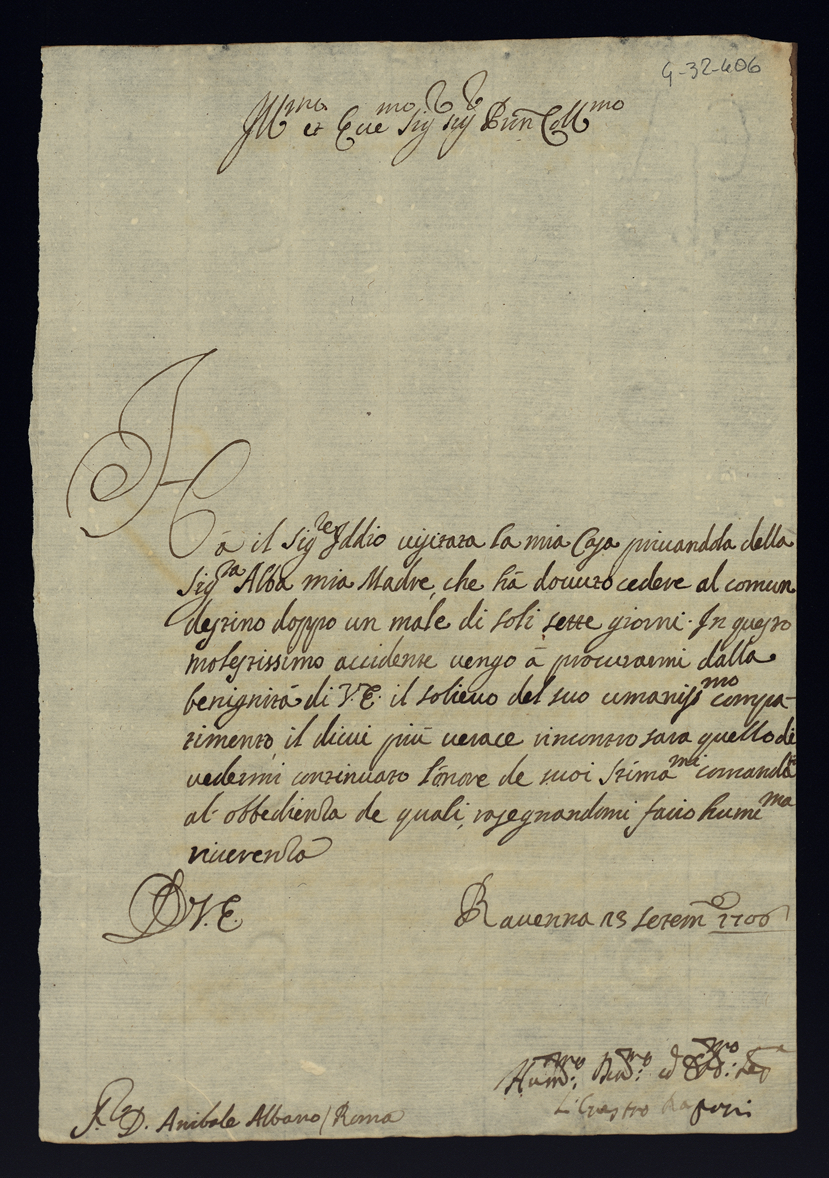 G-32-406
Ill.mo et Ecc.mo Sig.r Sig.r Prôn Coll.mo
Hà il Sig.re Iddio uisitata la mia Casa priuandola della
Sig.ra Alba mia Madre, che hà douuto cedere al comun
destino doppo un male di soli sette giorni. In questo
molestissimo accidente uengo à procurarmi dalla
benignità di V.E. il solieuo del suo umaniss.mo compa-
timento, il dicui più uerace rincontro sara quello di
uedermi continuato l'onore de suoi stima.mi comandi
al obbedienza de quali, rasegnandomi facio humi.ma
riuerenza
D V.E.
Rauenna 13 Setem.o 1706
Hum.mo Diu.mo ed
Rasponi
D. Anibale Albano / Roma